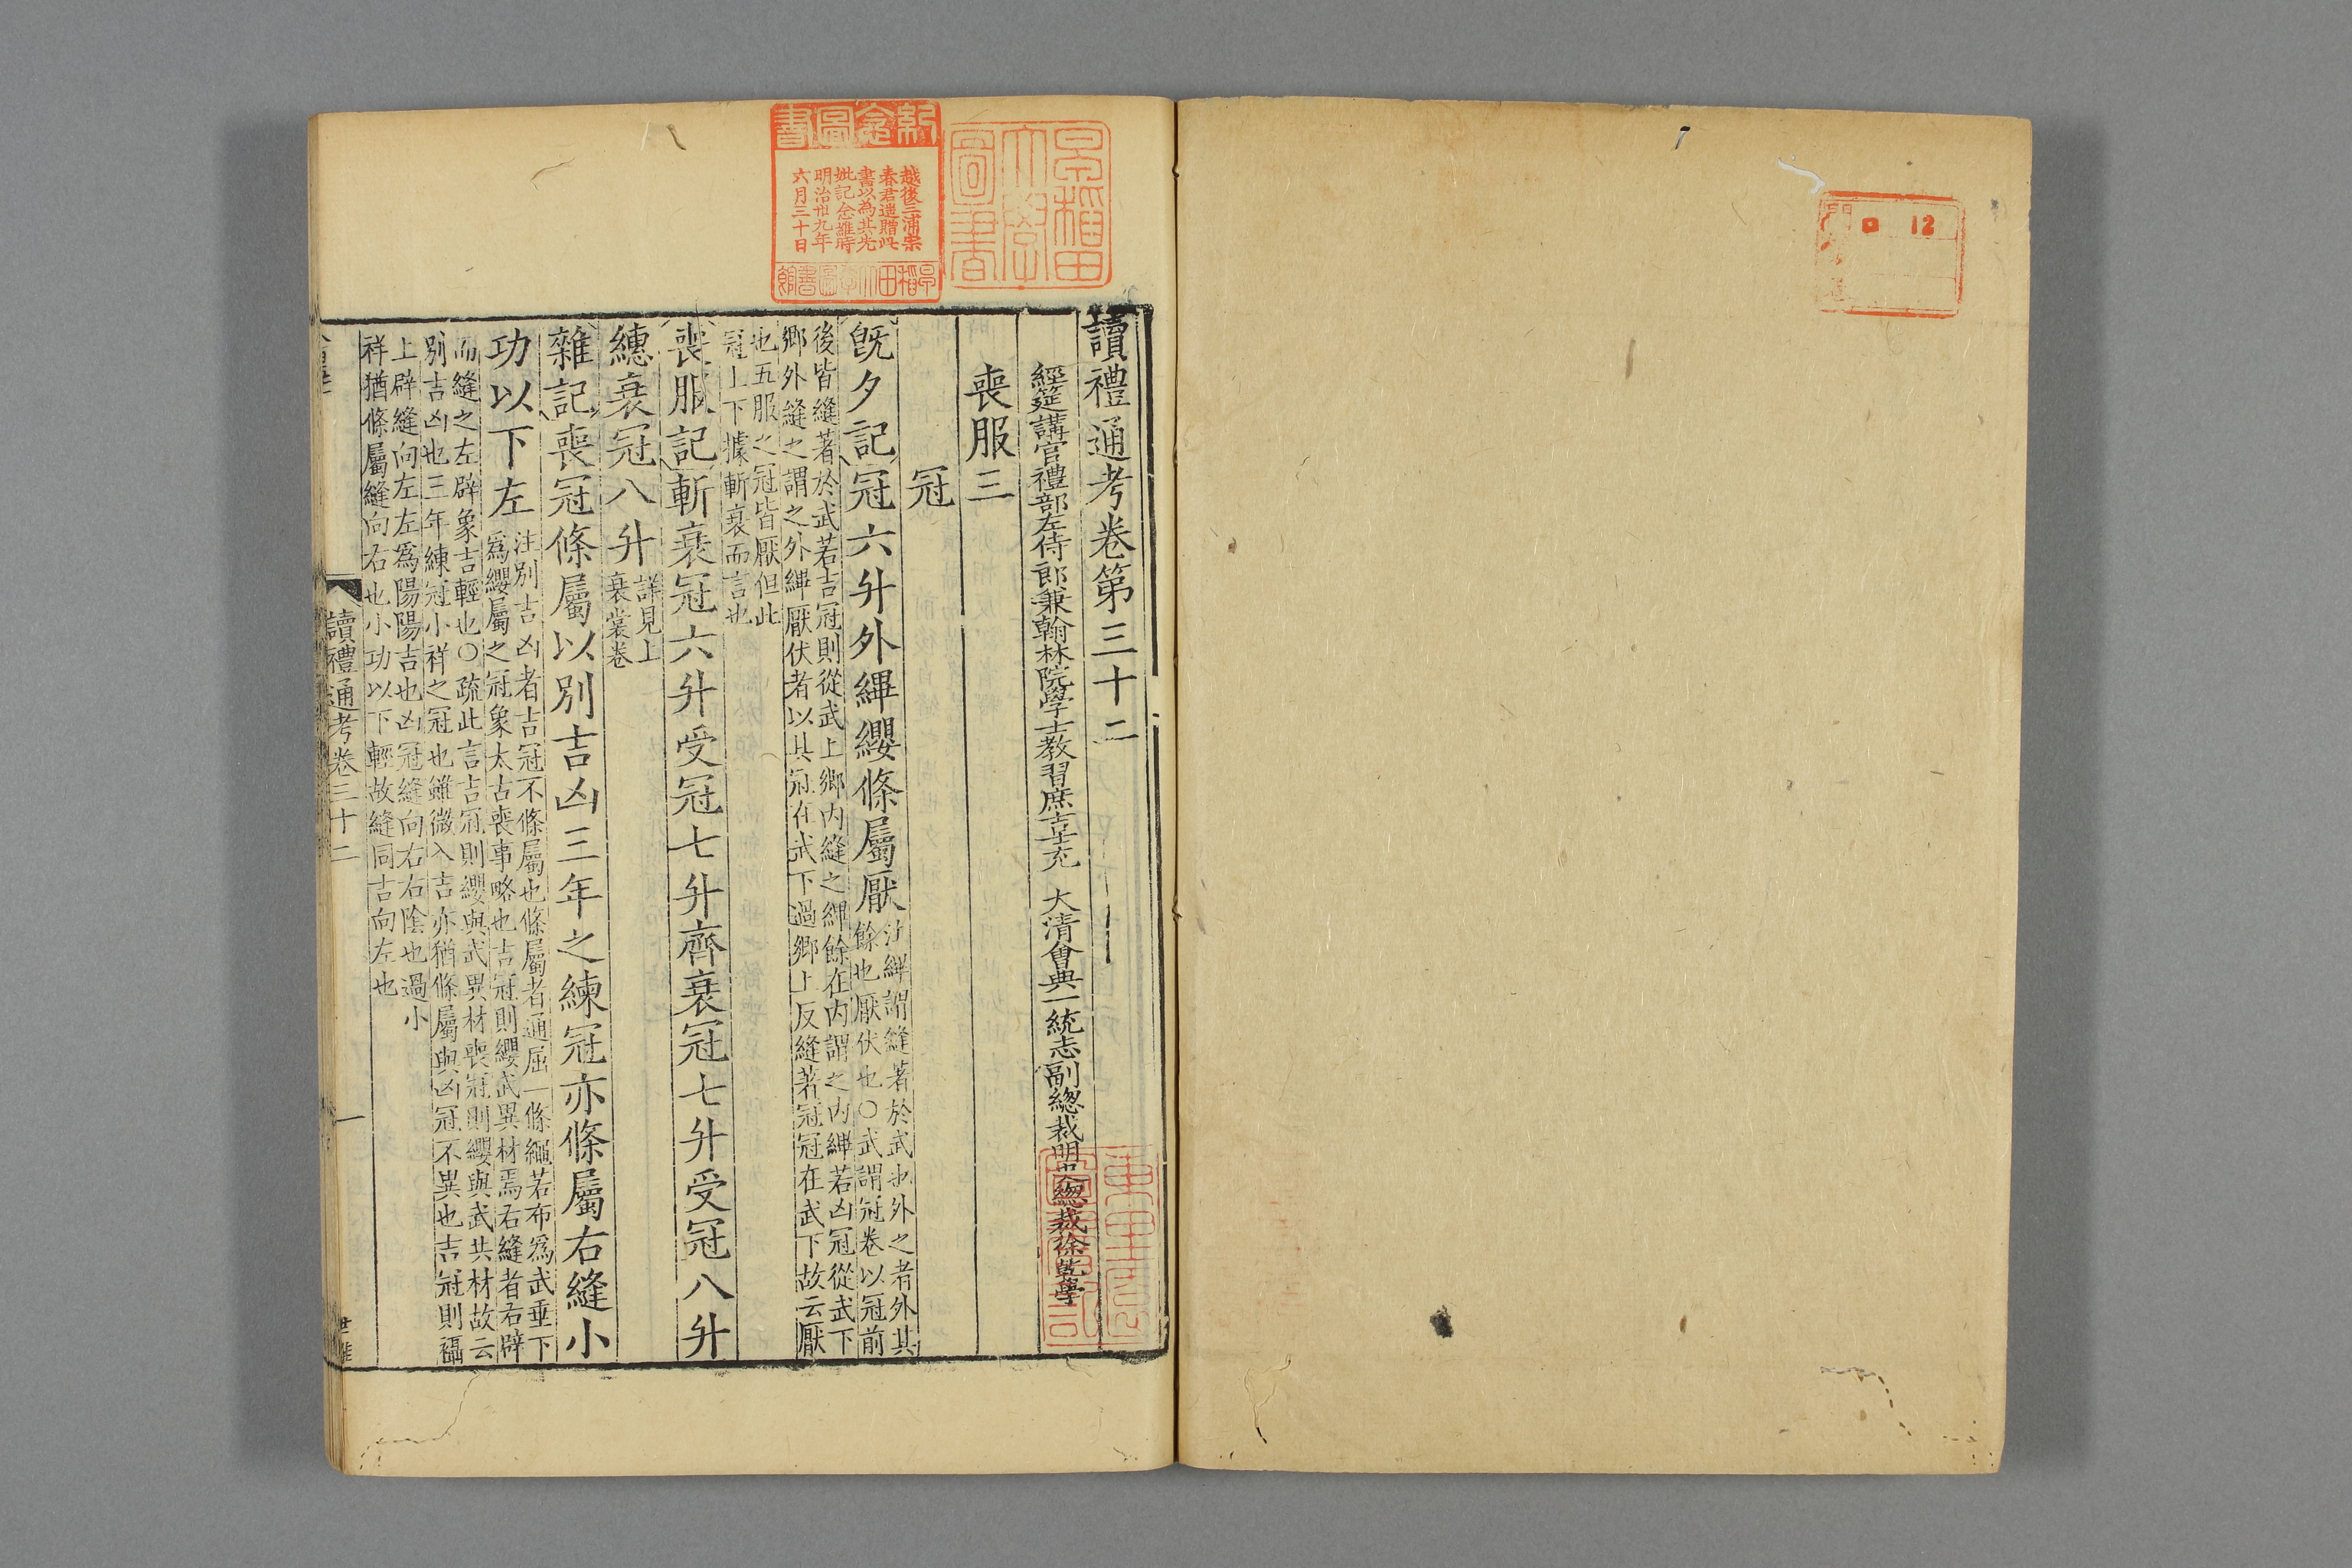 讀禮通考卷第三十二
經筵講官禮部左侍郎兼翰林院學士教習庶吉士充　大清會典一統志副總裁明史總裁徐乾學
喪服三
冠
旣夕記冠六升外縪纓條屬厭
注縪謂縫著於武也外之者外其
餘也厭伏也○武謂冠卷以冠前
後皆縫著於武若吉冠則從武上鄉內縫之縪餘在內謂之內縪若凶冠從武下
鄉外縫之謂之外縪厭伏者以其冠在武下過鄉上反縫著冠冠在武下故云厭
也五服之冠皆厭但此
冠上下據斬衰而言也
喪服記斬衰冠六升受冠七升齊衰冠七升受冠八升
繐衰冠八升
詳見上
衰裳卷
雜記喪冠條屬以別吉凶三年之練冠亦條屬右縫小
功以下左
注別吉凶者吉冠不條屬也條屬者通屈一條繩若布爲武垂下
爲纓屬之冠象太古喪事略也吉冠則纓武異材焉右縫者右辟
而縫之左辟象吉輕也○疏此言吉冠則纓與武異材喪冠則纓與武共材故云
別吉凶也三年練冠小祥之冠也雖微入吉亦猶條屬與凶冠不異也吉冠則襵
上辟縫向左左爲陽陽吉也凶冠縫向右右陰也過小
祥猶條屬縫向右也小功以下輕故縫同吉向左也
讀禮通考卷三十二
一
紀念圖書
越後三浦宗
春君遺贈此
書以為其先
妣記念維時
明治卅九年
六月三十日
早稻田大學圖書館
早稻田大學圖書
門
12